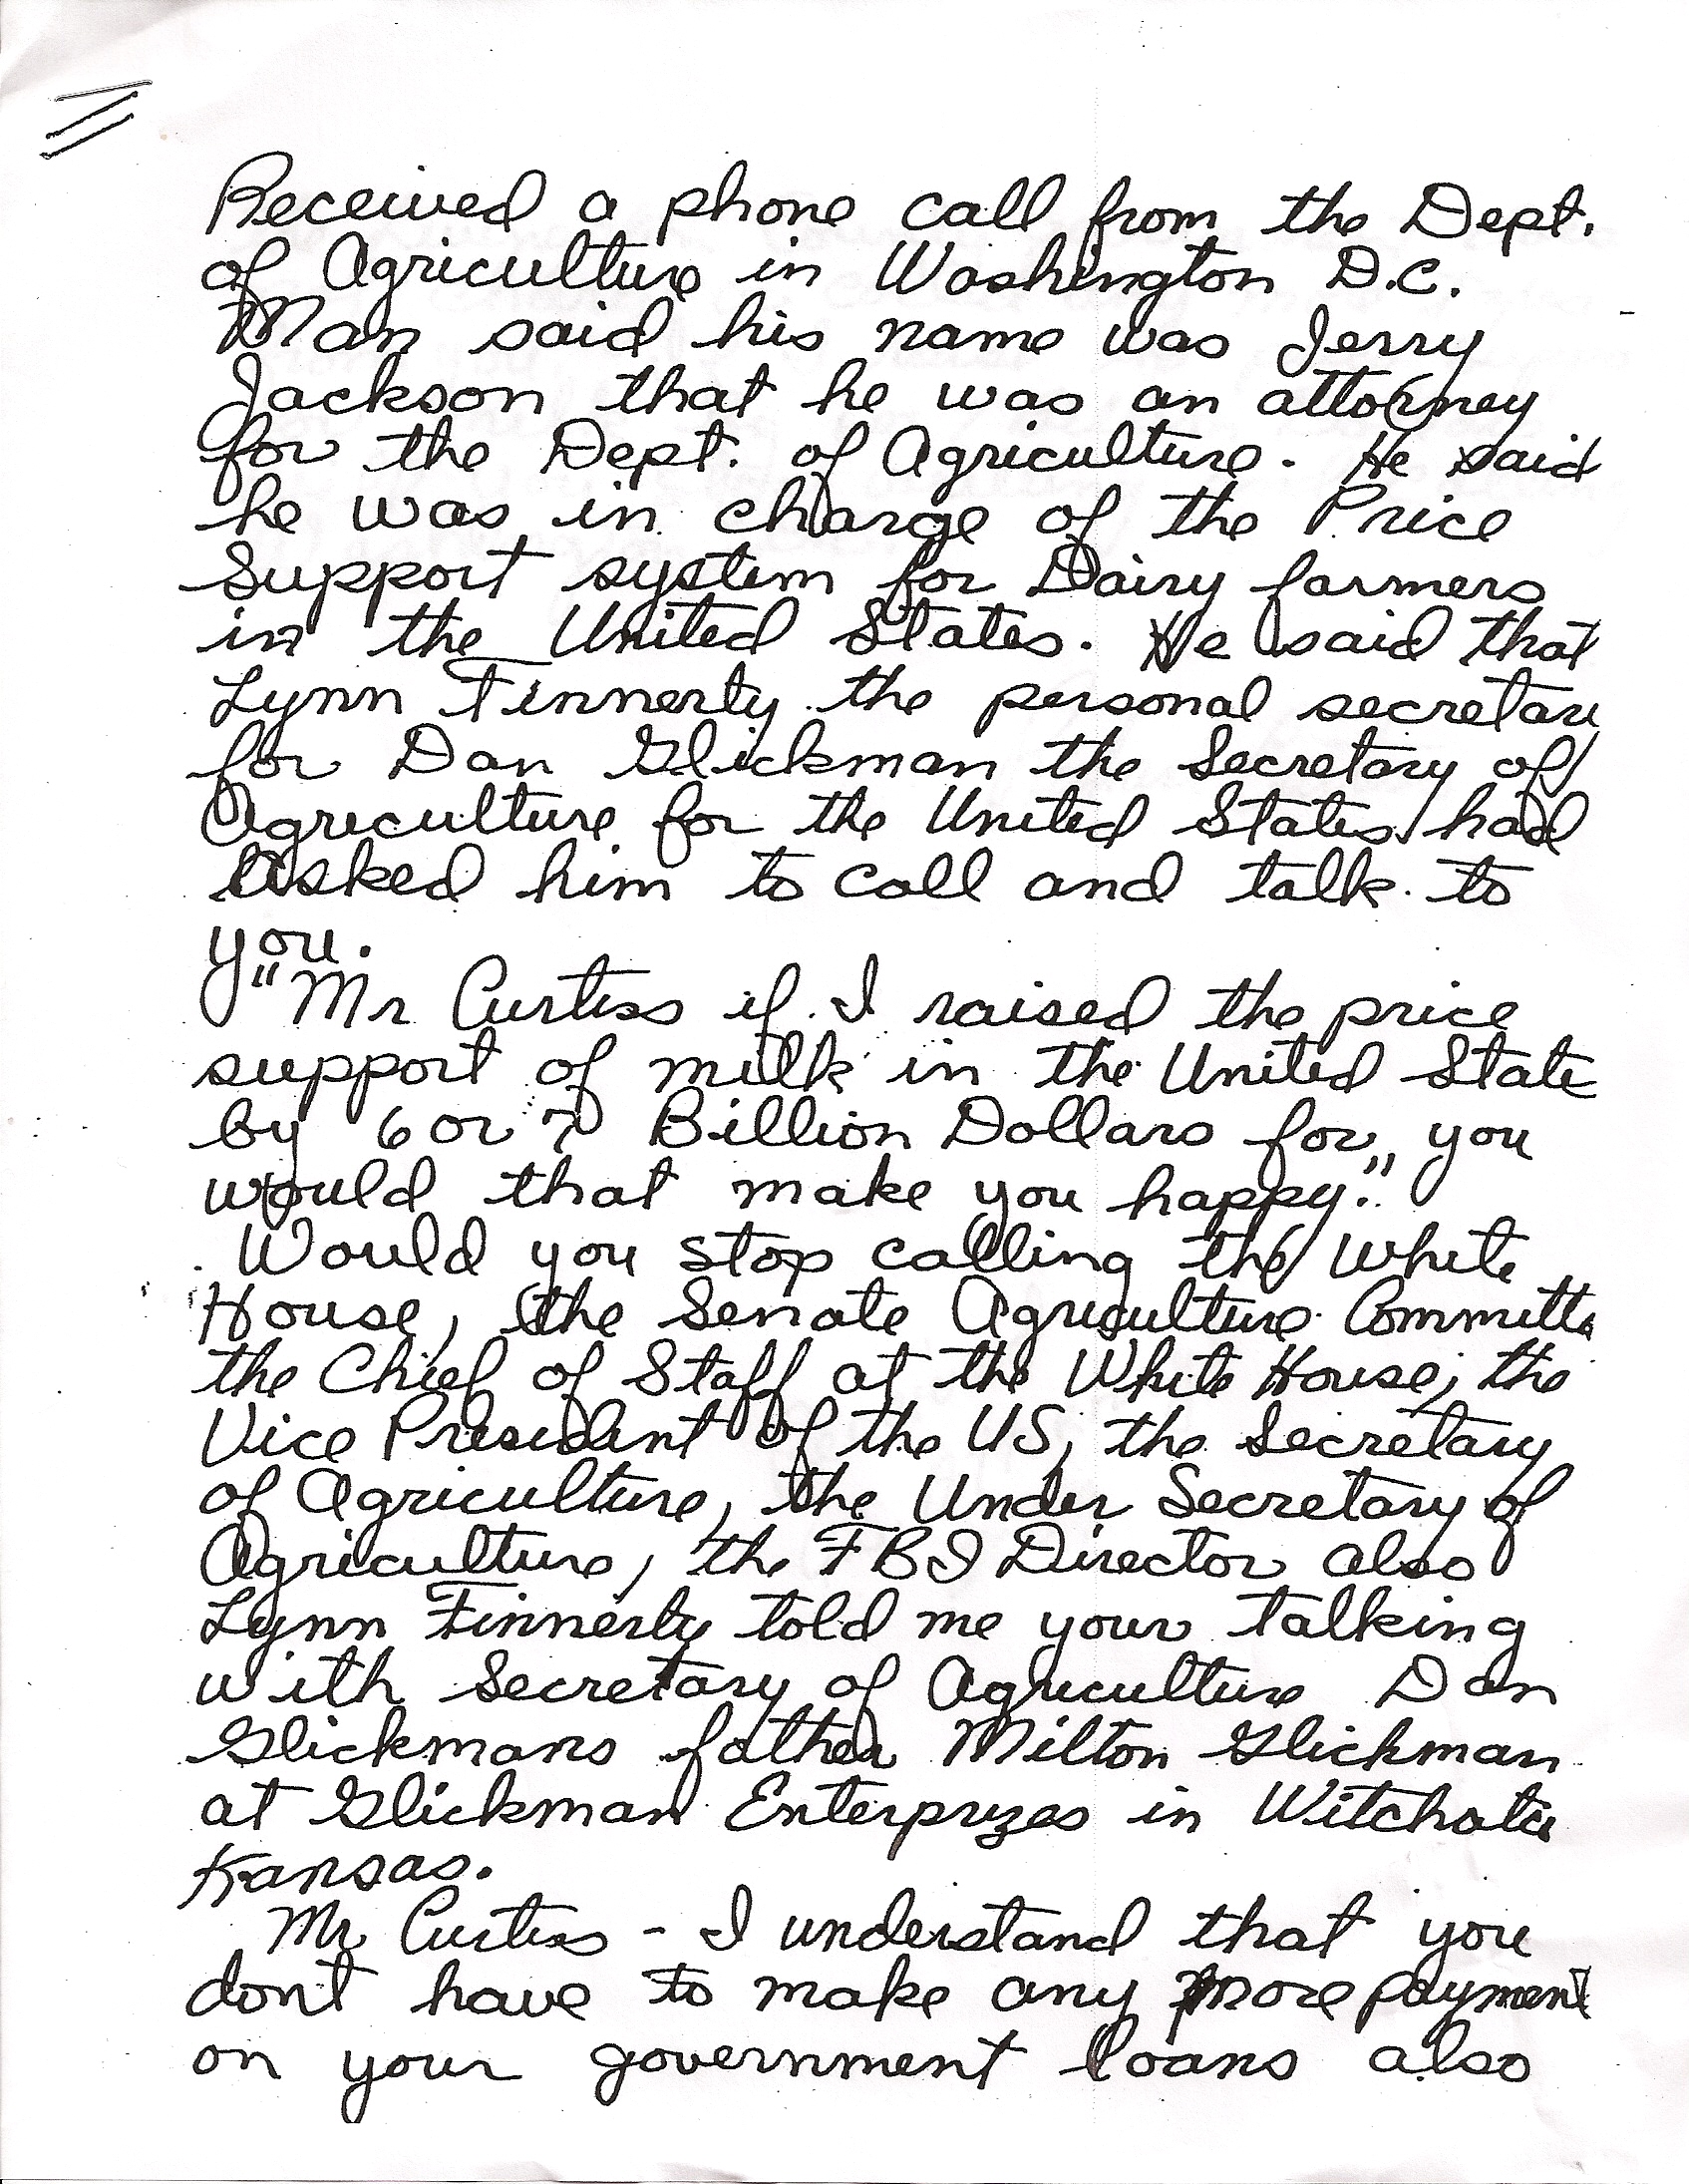 Received a phone call from the Dept.
of Agriculture in Washington D.C.
Man said his name was Jerry
Jackson that he was an attorney
for the Dept. of Agriculture. He said
he was in charge of the Price
Support system for Dairy farmers
in the United States. He said that
Lynn Finnerty the personal secretary
for Dan Glickman the Secretary of
Agriculture for the United States had
asked him to call and talk to
you.
"Mr Curtiss if I raised the price
support of milk in the United State
by 6 or 7 Billion Dollars for you
would that make you happy."
Would you stop calling the White
House, the Senate Agriculture Committe
the Chief of Staff at the White House, the
Vice President of the US, the Secretary
of Agriculture, the Under Secretary of
Agriculture, the FBI Director also
Lynn Finnerty told me your talking
with Secretary of Agriculture Dan
Glickmans father Milton Glickman
at Glickman Enterprizes in Witchata
Kansas.
Mr Curtiss - I understand that you
dont have to make any more payment
on your government loans also